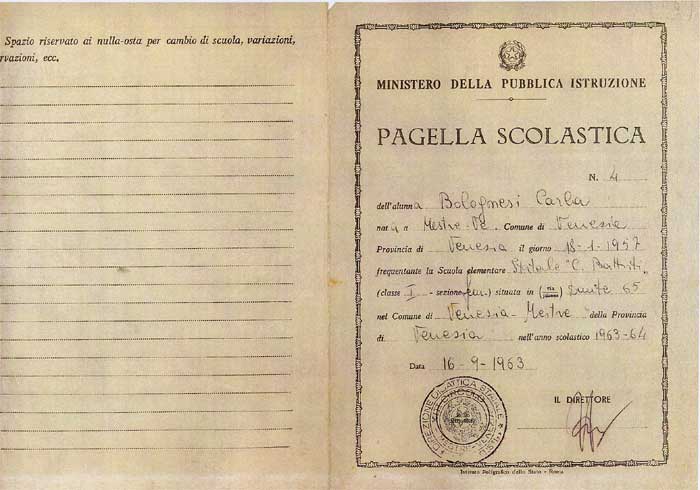 Spazio riservato ai nulla-osta per cambio di scuola, variazioni,
rvazioni, ecc.
MINISTERO DELLA PUBBLICA ISTRUZIONE
PAGELLA SCOLASTICA
N. 4
dell'alunna Bolognesi Carla
nata a Mestre-Ve. Comune di Venezia
Provincia di Venezia il giorno 18-1-1957
frequentante la Scuola elementare Statale "C. Battisti"
(classe I - sezione fem.) situata in (via) 65
nel Comune di Venezia-Mestre della Provincia
di Venezia nell'anno scolastico 1963-64
Data 16-9-1963
IL DIRETTORE
DIREZIONE DIDATTICA STATALE
Istituto Poligrafico dello Stato - Roma